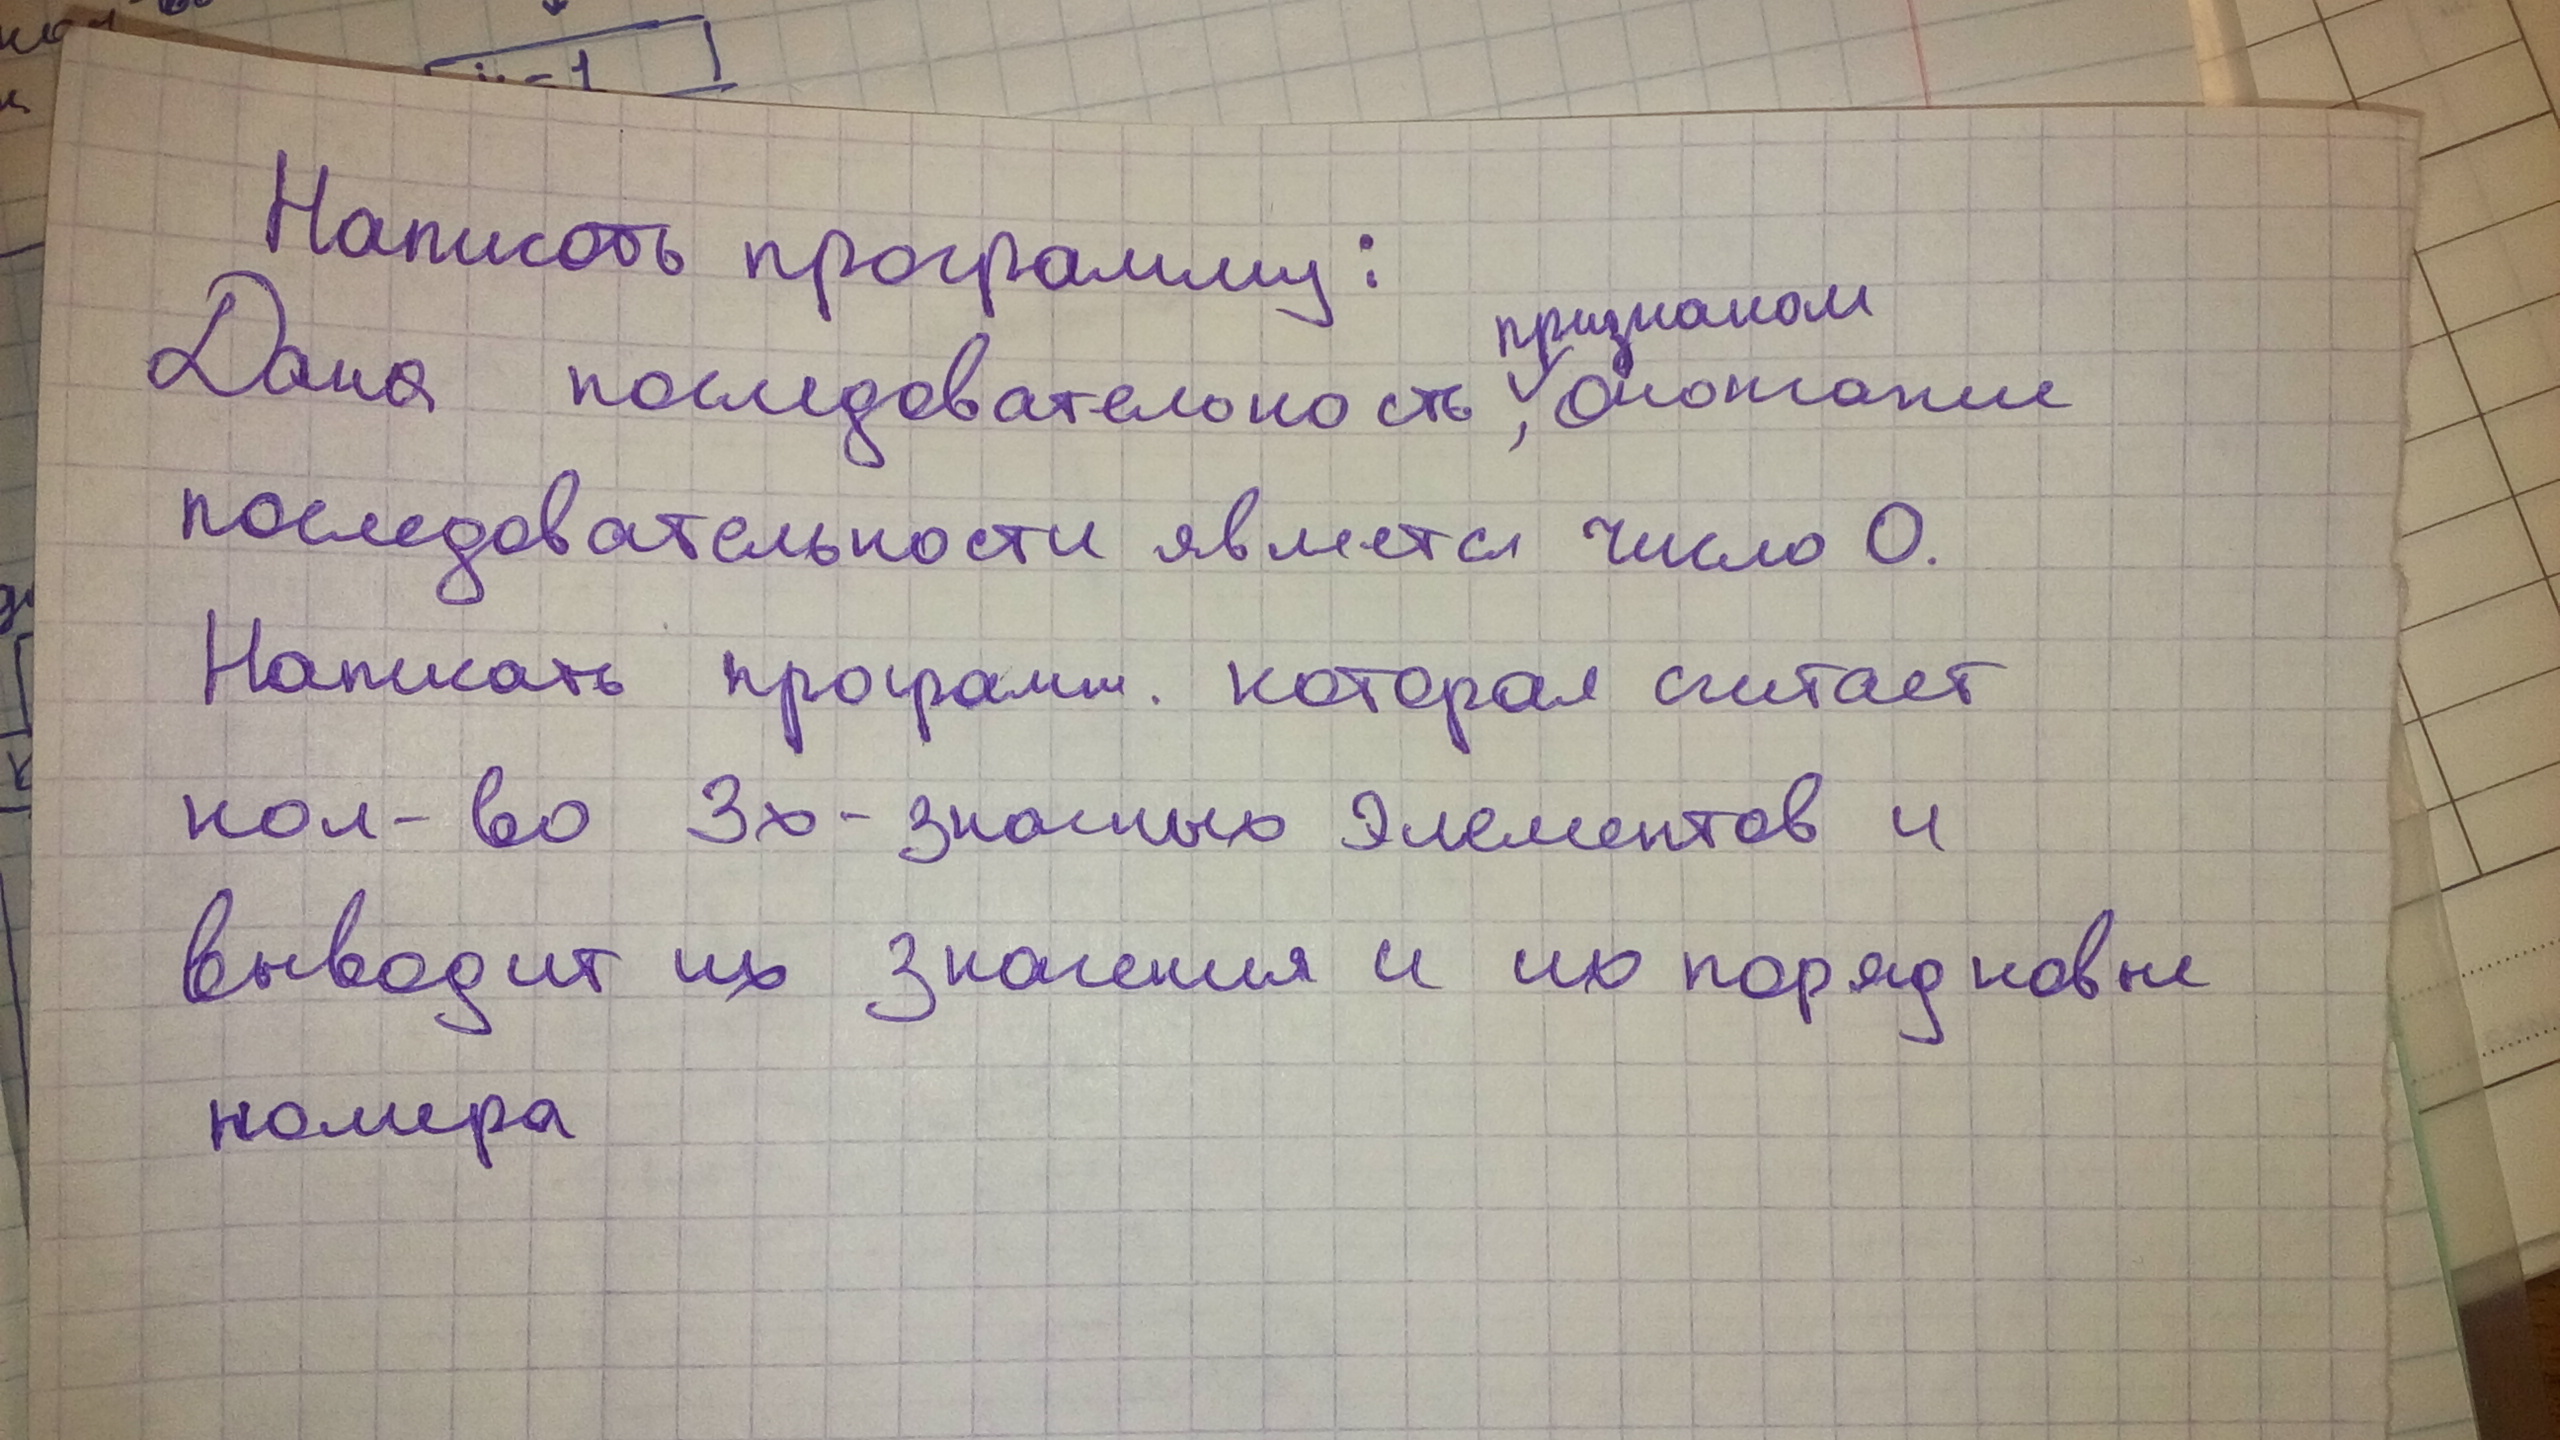 i = 1
Написать программу:
признаком
Дана последовательность, окончание
последовательности является число 0.
Написать программ. которая считает
кол-во 3х-значных элементов и
выводит их значения и их порядковые
номера